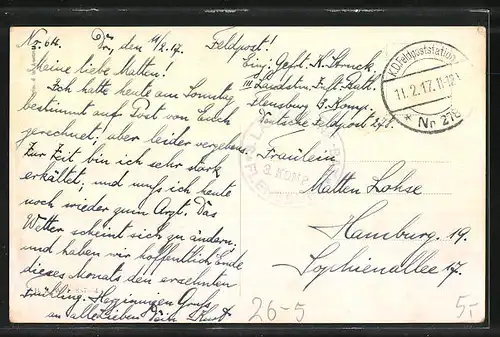 No. 64. Or., den 11/2.17. Feldpost!
Meine liebe Malten!
Ich hatte heute am Sonntag
bestimmt auf Post von Euch
gerechnet, aber leider vergebens.
Zur Zeit bin ich sehr stark
erkältet, und muß ich heute
noch wieder zum Arzt. Das
Wetter scheint sich zu ändern,
und haben wir hoffentlich Ende
dieses Monats den ersehnten
Frühling. Herzinnigen Gruß
an alle Lieben Dein Kurt.
Gefr. K.
III. Landstm. Inft. Batl.
Flensburg 3. Komp.
Deutsche Feldpost 278.
Fräulein
Malten Lohse
Hamburg 19.
Sophienallee 17.
K.D. Feldpoststation
11.2.17. 11-12V
* No 278
3. KOMP.
26-5
5,-